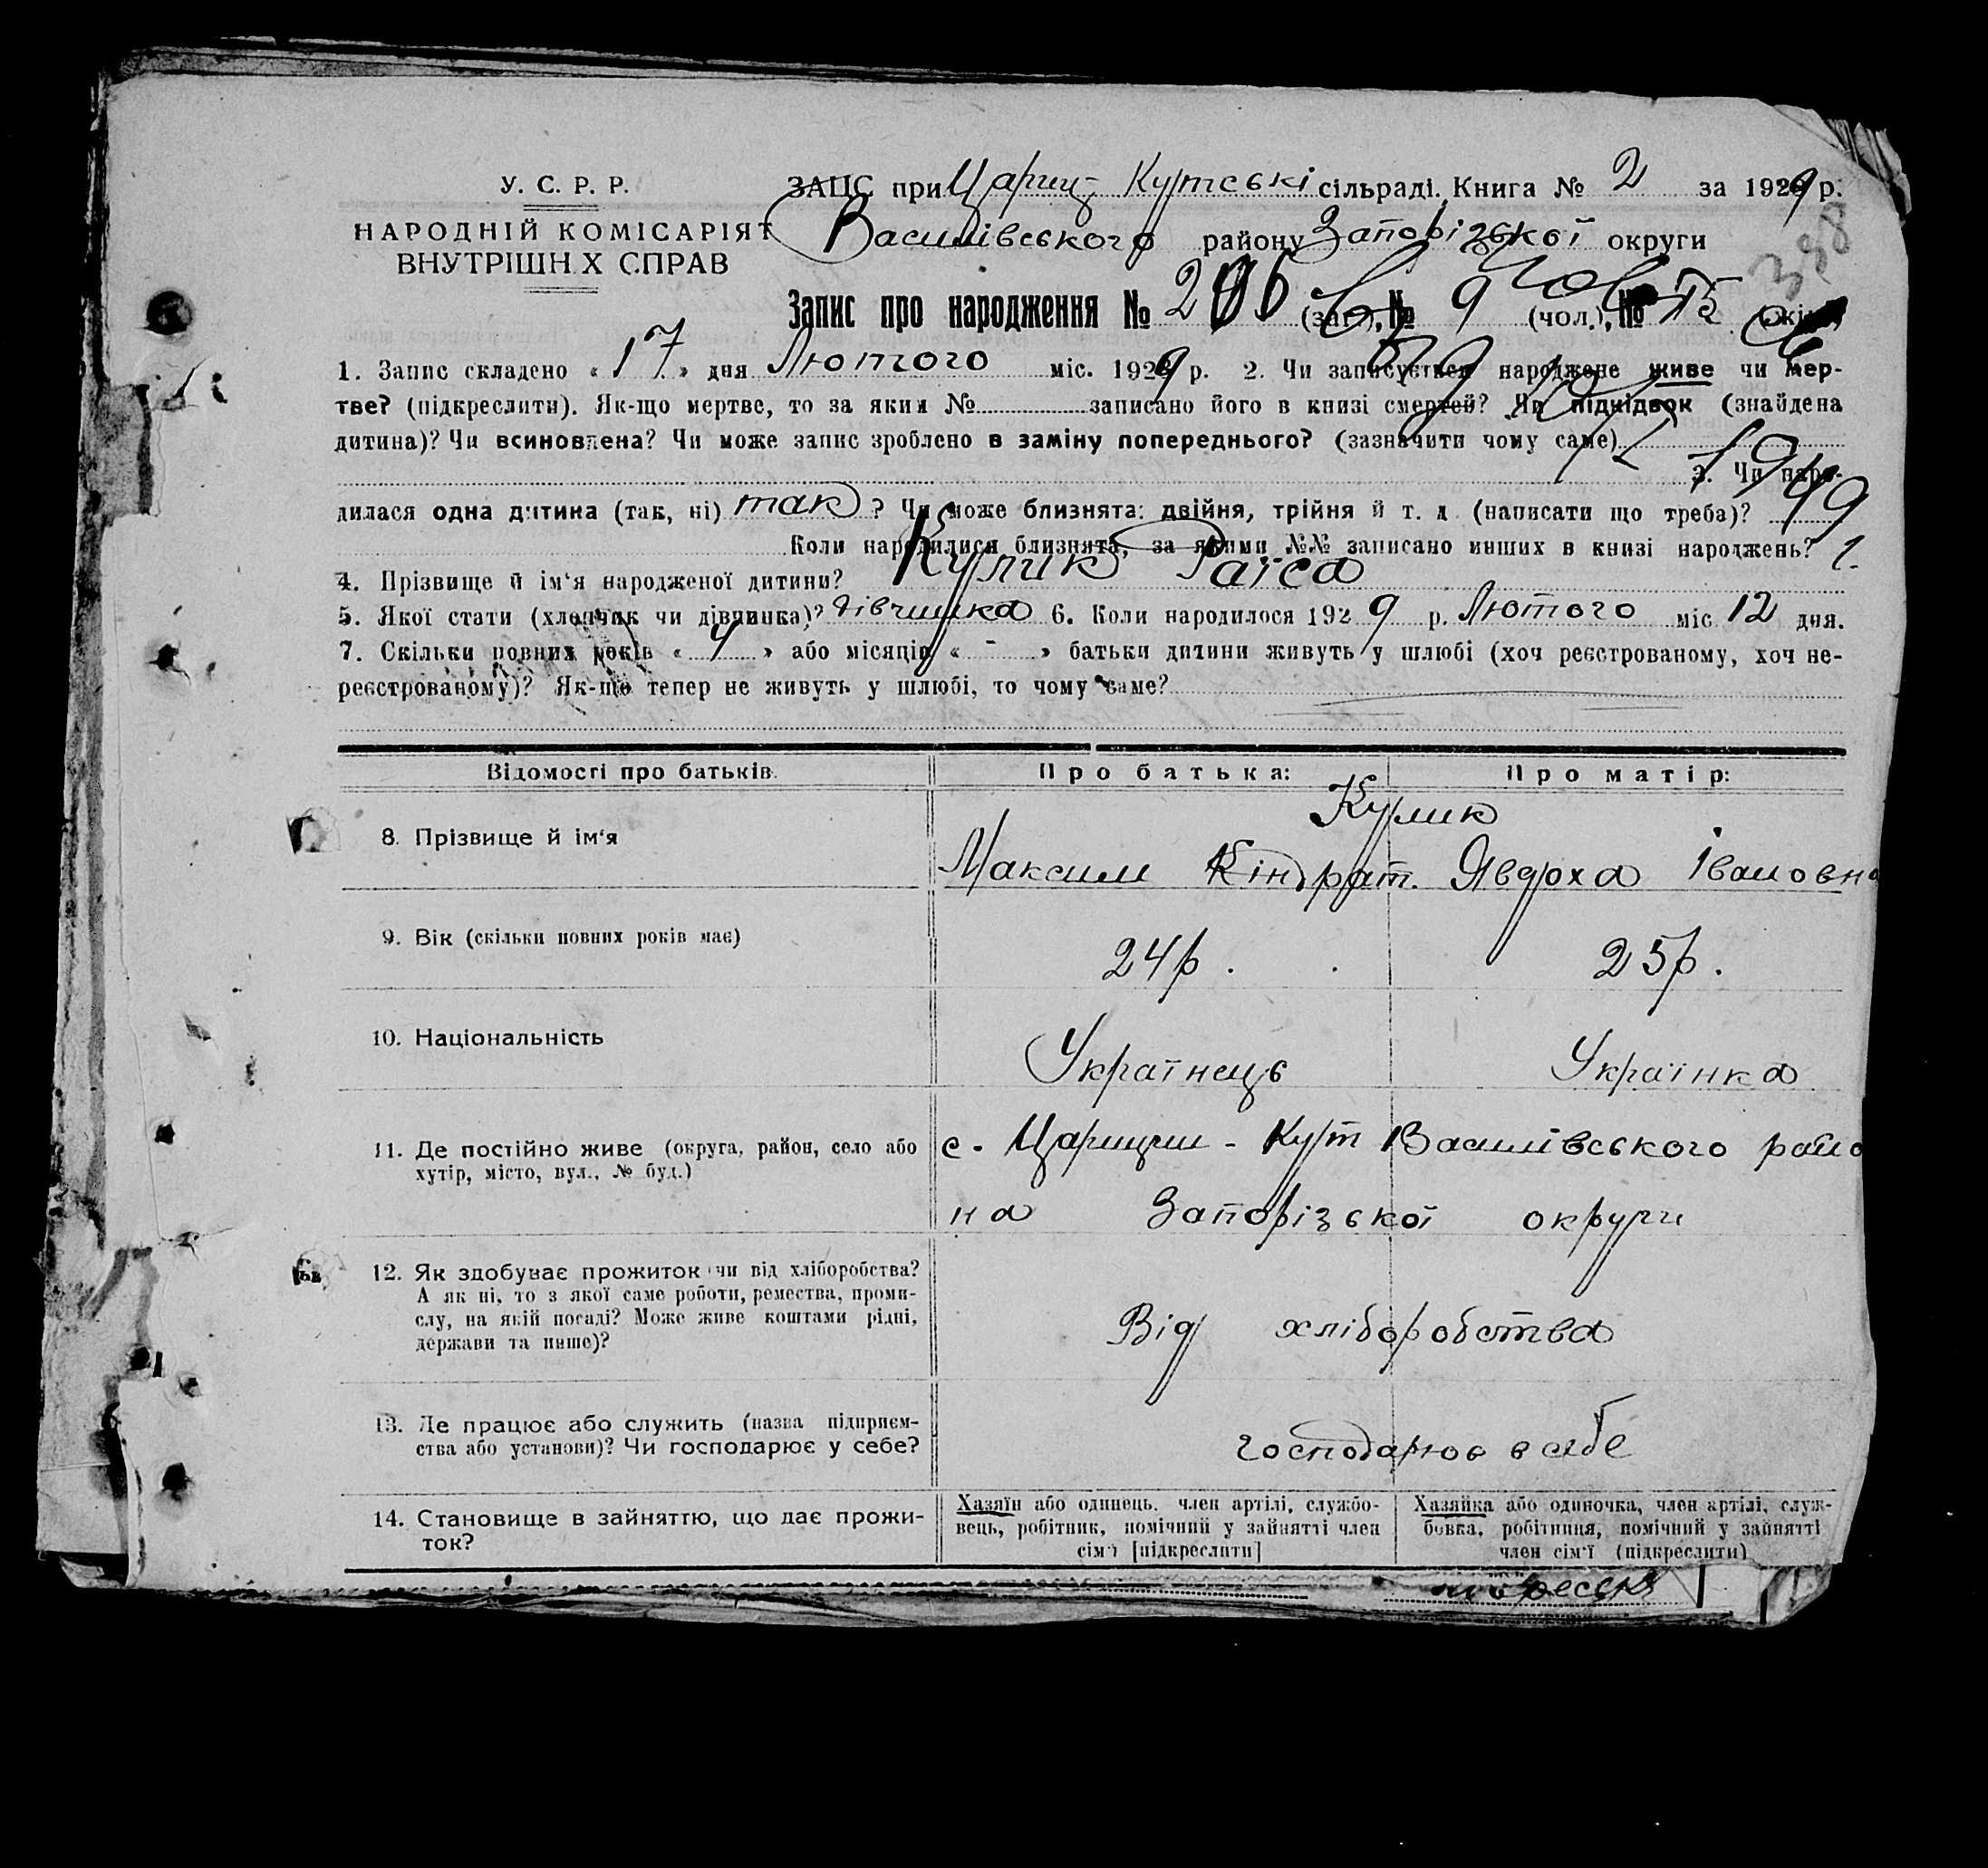 У. С. Р. Р.
НАРОДНІЙ КОМІСАРІЯТ
ВНУТРІШН Х СПРАВ
ЗАЦС при Цариц-Кутські сільраді. Книга № 2 за 1929 р.
Василівського району Запорізької округи
388
Запис про народження № (заг.), № 9 (чол.), № 15
1. Запис складено « 17 » дня Лютого міс. 1929 р. 2. Чи записується народжене живе чи мер-
тве? (підкреслити). Як-що мертве, то за яким № записано його в книзі смертей? Чи підкідьок (знайдена
дитина)? Чи всиновлена? Чи може запис зроблено в заміну попереднього? (зазначити чому саме)
3. Чи наро-
дилася одна дитина (так, ні) так ? Чи може близнята: двійня, трійня й т. д. (написати що треба)?
Коли народилися близнята, за якими №№ записано инших в книзі народжень?
4. Прізвище й ім'я народженої дитини? Кулик Раїса
5. Якої стати (хлопчик чи дівчинка)? дівчинка 6. Коли народилося 1929 р. Лютого міс 12 дня.
7. Скільки повних років « 4 » або місяців « - » батьки дитини живуть у шлюбі (хоч реєстрованому, хоч не-
реєстрованому)? Як-що тепер не живуть у шлюбі, то чому саме?
Відомості про батьків. Про батька: Про матір:
Кулик
8. Прізвище й ім'я Максим Кіндрат. Явдоха Івановна
9. Вік (скільки повних років має) 24 р. 25 р.
10. Національність Українець Українка
11. Де постійно живе (округа, район, село або с. Царицин-Кут Василівського райо
хутір, місто, вул., № буд.)
на Запорізької округи
12. Як здобуває прожиток чи від хліборобства?
А як ні, то з якої саме роботи, ремества, проми-
слу, на якій посаді? Може живе коштами рідні, Від хліборобства
держави та инше)?
13. Де працює або служить (назва підприєм-
ства або установи)? Чи господарює у себе? господарює в себе
14. Становище в зайняттю, що дає прожи-
ток?
Хазяїн або одинець, член артілі, службо-
вець, робітник, помічний у зайнятті член
сім'ї [підкреслити]
Хазяйка або одиночка, член артілі, служ-
бовка, робітниця, помічний у зайнятті
член сім'ї (підкреслити)